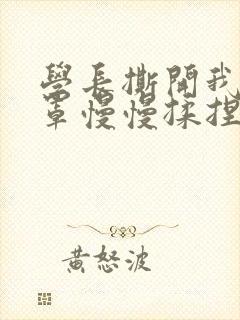 學長撕開我
罩慢慢揉捏
黃怒波